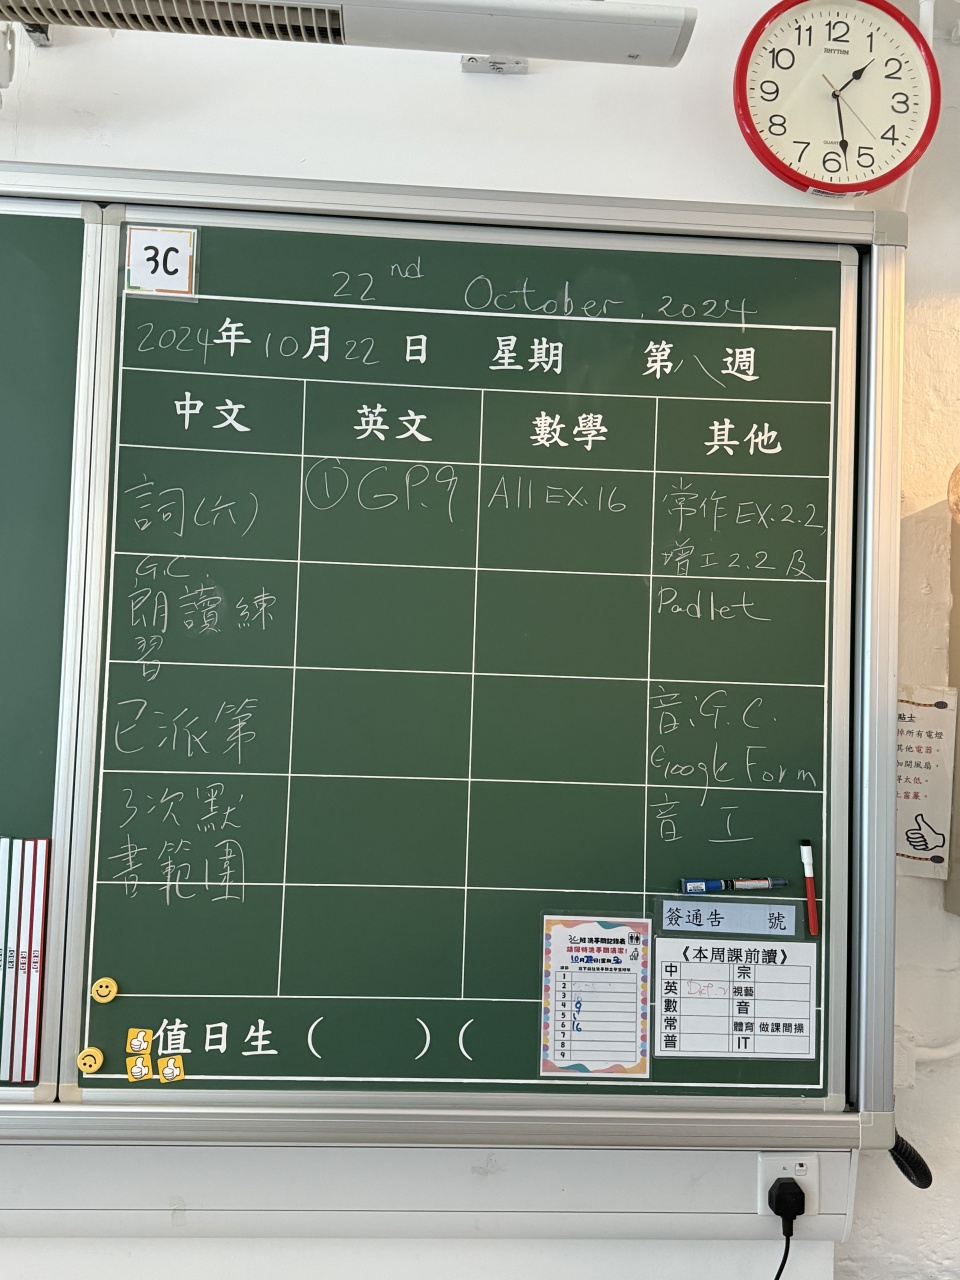 11 12 1
10 2
9 3
8 4
7 6 5
RHYTHM
QUARTZ
3C
22nd October, 2024
2024年10月22日 星期 第八週
中文 英文 數學 其他
詞(六) ①GP.9 All EX.16 常作EX.2.2,
增工2.2及
G.C.
朗讀練 Padlet
習
已派第 音:G.C.
Google Form
3次默 音工
書範圍
簽通告 號
3C班洗手間記錄表
10月22日(星期
1
2
3
4 9
5
6 16
7
8
9
《本周課前讀》
中 宗
英 視藝
數 音
常 體育 做課間操
普 IT
值日生( )(
貼士
掉所有電燈
其他電器。
如開風扇，
太低。
上窗簾。